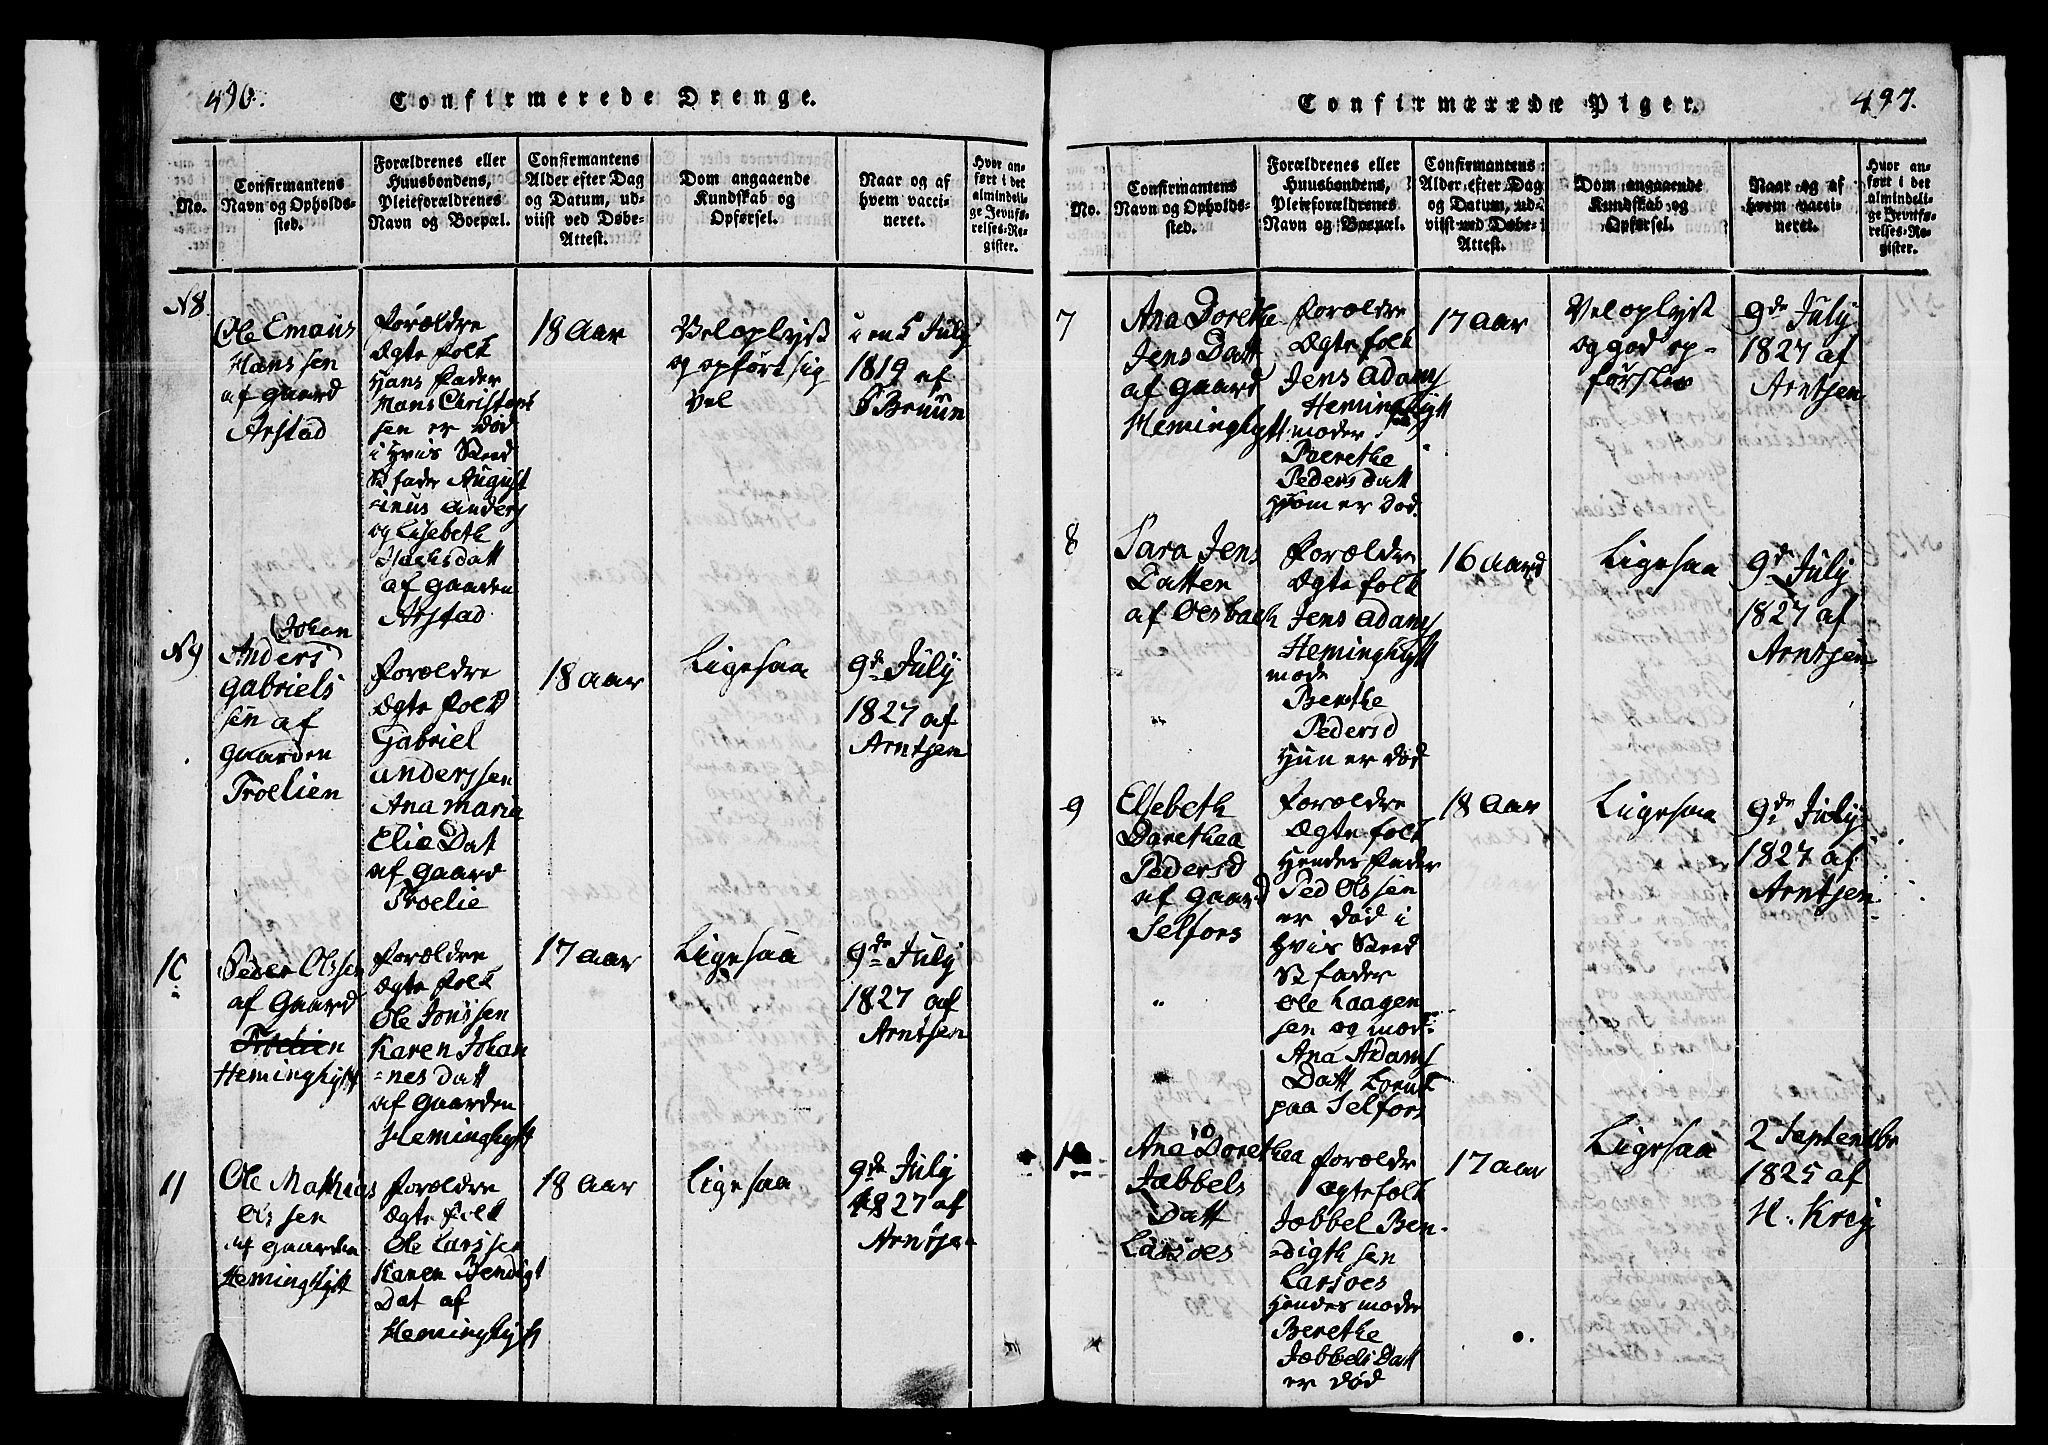 490.
Confirmerede Drenge.
No.
Confirmantens
Navn og Opholds-
sted.
Forældrenes eller
Huusbondens,
Pleieforældrenes
Navn og Boepæl.
Confirmantens
Alder efter Dag
og Datum, ud-
viist ved Døbe-
Attest.
Dom angaaende
Kundskab og
Opførsel.
Naar og af
hvem vacci-
neret.
Hvor an-
ført i det
almindeli-
ge Jevnfø-
relses-Re-
gister.
N8
Ole Emaus
Hanssen
af gaard
Arstad
Forældre
Ægte folk
Hans Fader
Hans Christens
sen er død
i Hvis Sted
St fader August
inus Anders
og Lisebeth
datt
af gaarden
Arstad
18 Aar
Vel oplyst
og opført sig
Vel
5 July
1819 af
Bruun
N9
(Johan
Anders
Gabriels
sen af
gaarden
Troelien
Forældre
Ægte folk
Gabriel
anderssen
Ana Maria
Elia Dat
af gaard
Troelie
18 aar
Ligesaa
9de July
1827 af
Arntsen
10
Peder Olssen
af Gaard
Troelien
Heminghytt
Forældre
Ægte folk
Ole Jonssen
Karen Johan
=nes datt
af gaarden
Heminghytt
17 aar
Ligesaa
9de July
1827 af
Arntsen
11
Ole Mathias
Olssen
af gaarden
Heminghytt
Forældre
Ægte folk
Ole Larssen
Karen Bendigt
Dat af
Heminghytt
18 Aar
Ligesaa
9de July
1827 af
Arntsen
497.
Confirmerede Piger.
No.
Confirmantens
Navn og Opholds-
sted.
Forældrenes eller
Huusbondens,
Pleieforældrenes
Navn og Boepæl.
Confirmantens
Alder efter Dag
og Datum, ud-
viist ved Døbe-
Attest.
Dom angaaende
Kundskab og
Opførsel.
Naar og af
hvem vacci-
neret.
Hvor an-
ført i det
almindeli-
ge Jevnfø-
relses-Re-
gister.
7
Ana Dorethe
Jens Datt
af gaard
Heminghytt
Forældre
Ægte folk
Jens Adams
Heminghytt
moder
Berethe
Pedersdatt
som er Dod.
17 aar
Vel oplyst
og god op-
førsler
9de July
1827 af
Arntsen
8
Sara Jens
Datter
af Oesbach
Forældre
Ægte folk
Jens adams
Heminghytt
mode
Berthe
Pedersd
Hun er død
16 aar
Ligesaa
9de July
1827 af
Arntsen
9
Elsebeth
Dorethea
Pedersd
af gaard
Selfors
Forældre
Ægte folk
Hendes Fader
Ped Olssen
er død i
Hvis Sted
St fader
Ole Haagen
sen og mod
Ana Adams
Datt
paa Selfors
18 Aar
Ligesaa
9de July
1827 af
Arntsen
10
Ana Dorethea
Jæbbels
Datt
Larsoes
Forældre
Ægtefolk
Jæbbel Ben-
=digthsen
Larsoes
Hendes moder
Berethe
JæbbelsDatt
er død
17 aar
Ligesaa
2 Septembr
1825 af
H. Krey